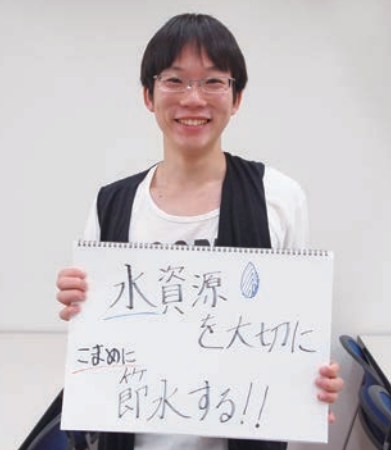 水資源
を大切に
こまめに
節水する!!